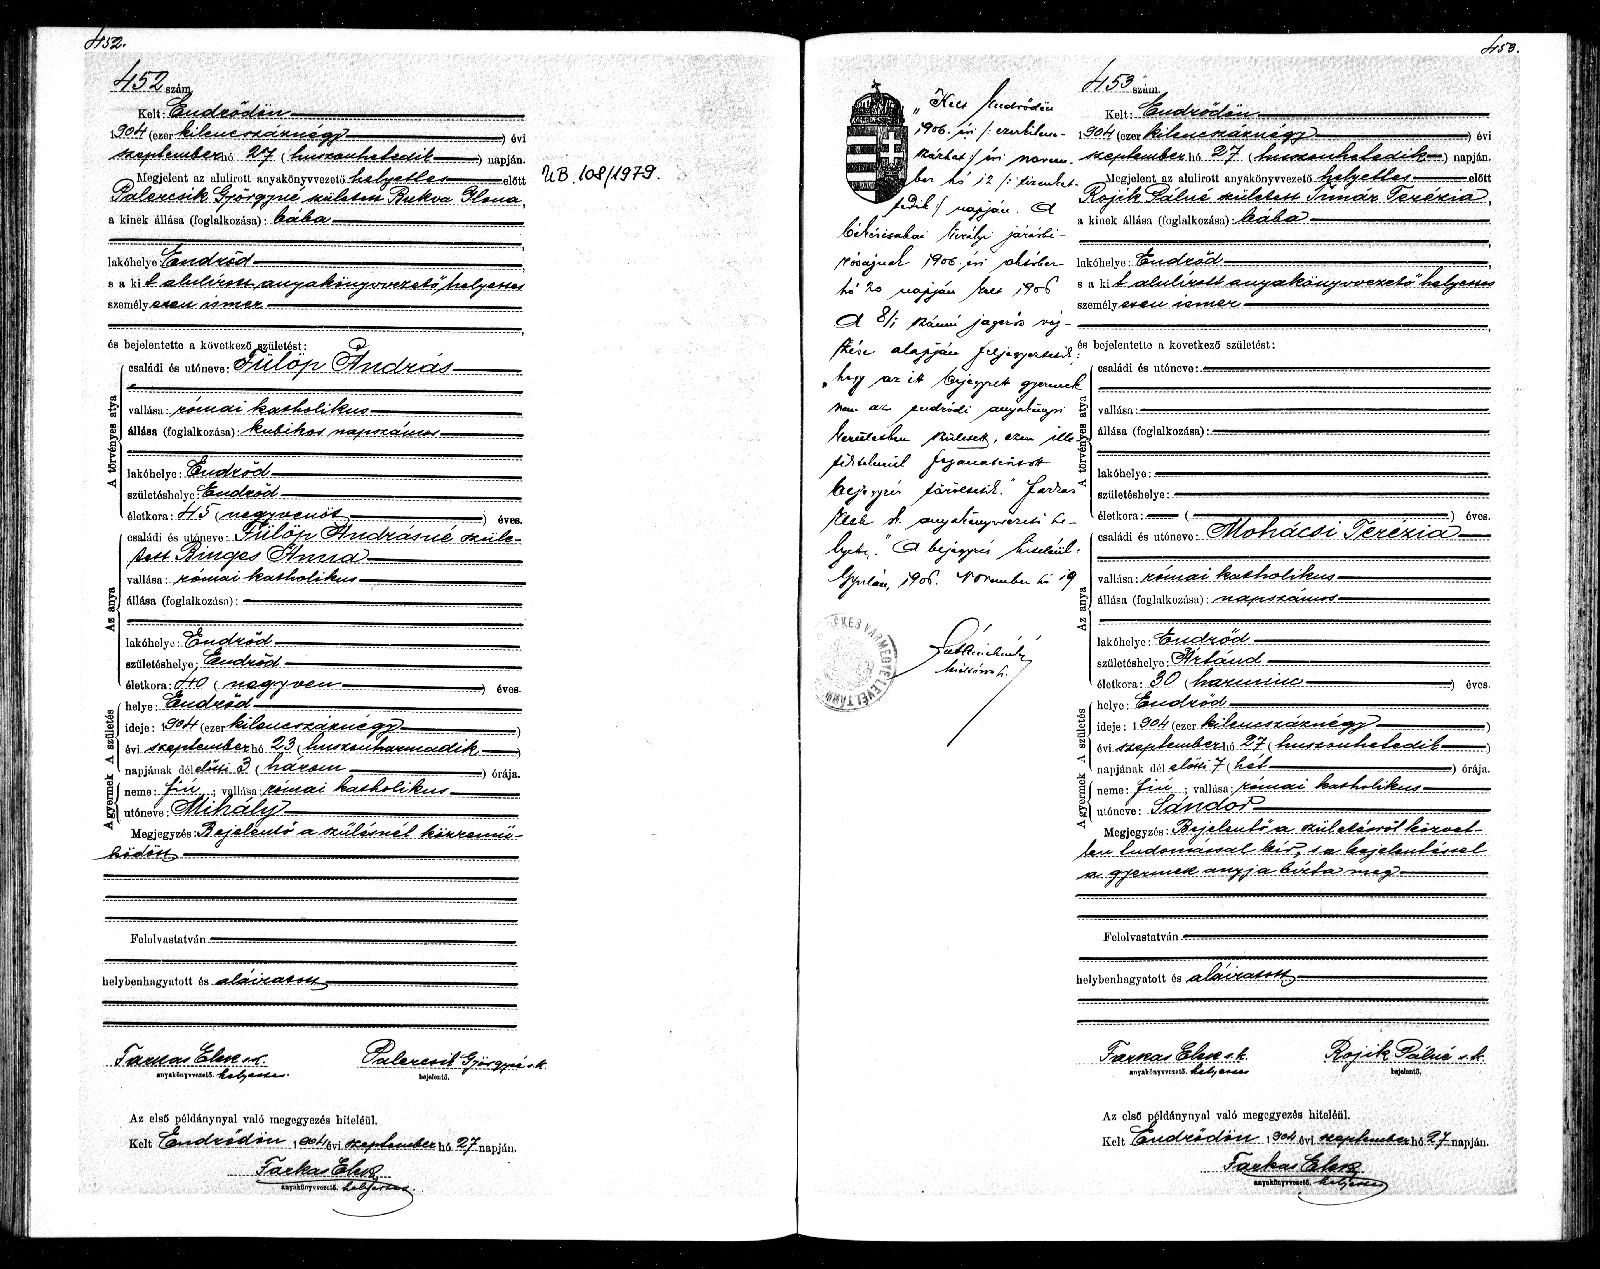 452.
452 szám
Kelt: Endrődön
1904 (ezer kilencszáznégy) évi
szeptember hó 27 (huszonhetedik) napján.
Megjelent az alulirott anyakönyvvezető helyettes előtt
Palercsik Györgyné született Bukva Ilona,
a kinek állása (foglalkozása): bába
lakóhelye: Endrőd
s a kit alulírott anyakönyvvezető helyettes
személyesen ismer
és bejelentette a következő születést:
A törvényes atya
családi és utóneve: Fülöp András
vallása: római katholikus
állása (foglalkozása): kubikos napszámos
lakóhelye: Endrőd
születéshelye: Endrőd
életkora: 45 (negyvenöt) éves.
Az anya
családi és utóneve: Fülöp Andrásné szüle-
tett Binges Anna
vallása: római katholikus
állása (foglalkozása):
lakóhelye: Endrőd
születéshelye: Endrőd
életkora: 40 (negyven) éves.
A születés
helye: Endrőd
ideje: 1904 (ezer kilencszáznégy)
évi szeptember hó 23 (huszonharmadik)
napjának dél előtti 3 (három) órája.
A gyermek
neme: fiú; vallása: római katholikus
utóneve: Mihály
Megjegyzés: Bejelentő a szülésnél közremű-
ködött
Felolvastatván
helybenhagyatott és aláiratott
Farkas Elek s.k. Palercsik Györgyné s.k.
anyakönyvvezető. helyettes. bejelentő.
Az első példánynyal való megegyezés hiteléül.
Kelt Endrődön 1904 évi szeptember hó 27 napján.
Farkas Elek
anyakönyvvezető. helyettes.
UB. 108/1979.
453.
„Kelt Endrődön
1906. évi /: ezerkilenc-
százhat :/ évi novem-
ber hó 12 /: tizenket-
tedik :/ napján. A
békéscsabai királyi járásbi-
róságnak 1906. évi október
hó 20 napján kelt 1906
számú jogerős vég-
zése alapján feljegyeztetik:
„hogy az itt bejegyzett gyermek
nem az endrődi anyakönyvi
kerületben született, ezen ille-
téktelenül foganatosított
bejegyzés töröltetik." Farkas
Elek s.k. anyakönyvvezető he-
lyettes." A bejegyzés hiteléül.
Gyulán, 1906. November hó 19
BÉKÉS VÁRMEGYE LEVÉLTÁRA
453 szám.
Kelt: Endrődön
1904 (ezer kilencszáznégy) évi
szeptember hó 27 (huszonhetedik) napján.
Megjelent az alulirott anyakönyvvezető helyettes előtt
Rojik Pálné született Timár Terézia,
a kinek állása (foglalkozása): bába
lakóhelye: Endrőd
s a kit alulírott anyakönyvvezető helyettes
személyesen ismer
és bejelentette a következő születést:
A törvényes atya
családi és utóneve:
vallása:
állása (foglalkozása):
lakóhelye:
születéshelye:
életkora: ( ) éves.
Az anya
családi és utóneve: Mohácsi Terézia
vallása: római katholikus
állása (foglalkozása): napszámos
lakóhelye: Endrőd
születéshelye: Ártánd
életkora: 30 (harminc) éves.
A születés
helye: Endrőd
ideje: 1904 (ezer kilencszáznégy)
évi szeptember hó 27 (huszonhetedik)
napjának dél előtti 7 (hét) órája.
A gyermek
neme: fiú; vallása: római katholikus
utóneve: Sándor
Megjegyzés: Bejelentő a születésről közvet-
len tudomással bír, s a bejelentéssel
a gyermek anyja bízta meg
Felolvastatván
helybenhagyatott és aláiratott
Farkas Elek s.k. Rojik Pálné s.k.
anyakönyvvezető. helyettes bejelentő.
Az első példánynyal való megegyezés hiteléül.
Kelt Endrődön 1904 évi szeptember hó 27 napján.
Farkas Elek
anyakönyvvezető. helyettes